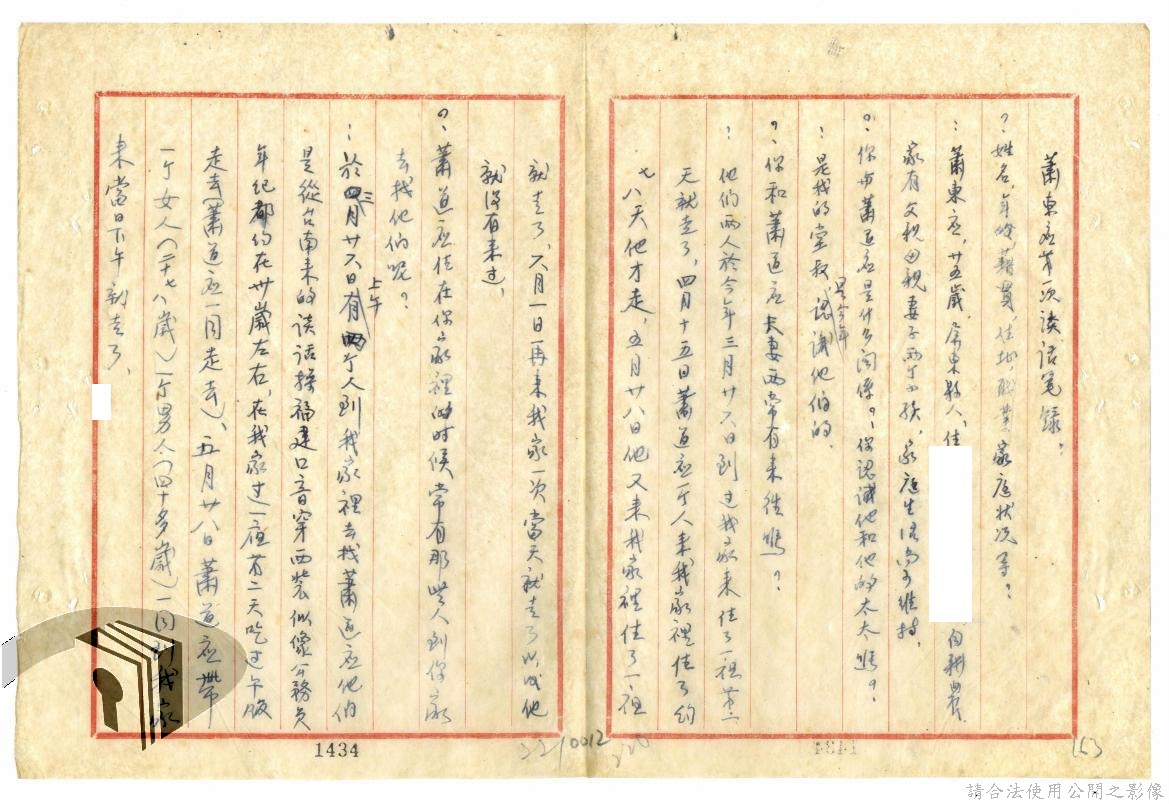 蕭東応第一次談話笔録、
?、姓名、年岁、籍貫、住址、職業、家庭状况等?
:蕭東応,廿五歲,屏東縣人,住 自耕農,
家有父親母親妻子两个小孩,家庭生活尚可维持,
?:你与蕭道应是什么関係?、你認識他和他的太太嗎?
:是我的堂叔、是今年認識他们的、
?、你和蕭道应夫妻两常有来往嗎?
:他们两人於今年三月廿六日到过我家来住了一夜第二
天就走了,四月十五日蕭道应一个人来我家裡住了約
七八天他才走,五月廿八日他又来我家裡住了一夜
就走了、六月一日再来我家一次當天就走了以後他
就没有来过,
?、蕭道应住在你家裡的时候常有那些人到你家
去找他们呢?
:於三月廿六日上午有两个人到我家裡去找蕭道应他们
是從台南来的談話操福建口音穿西装似像公務員
年纪都約在卅歲左右,在我家过一夜第二天吃过午飯
走去(蕭道应一同走去)、五月廿八日蕭道应帶
一个女人(二十七八歲)一个男人(四十多歲)一同到我家
来當日下午就走了、
1434
0012
163
1434
請合法使用公開之影像